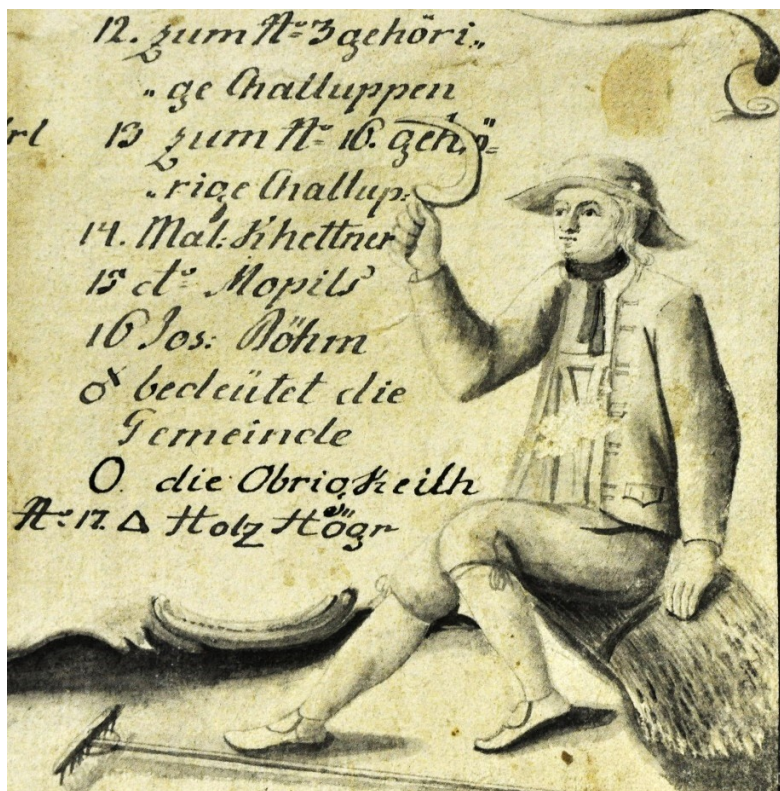 12. zum No 3 gehöri„
„ge Challuppen
rl 13 zum No 16. gehö=
„rige Challup=
14. Mat: Khettner
15 dto Mopils
16 Jos: Böhm
♂ bedeütet die
Gemeinde
O. die Obrigkeith
No: 17. Δ Holz Högr